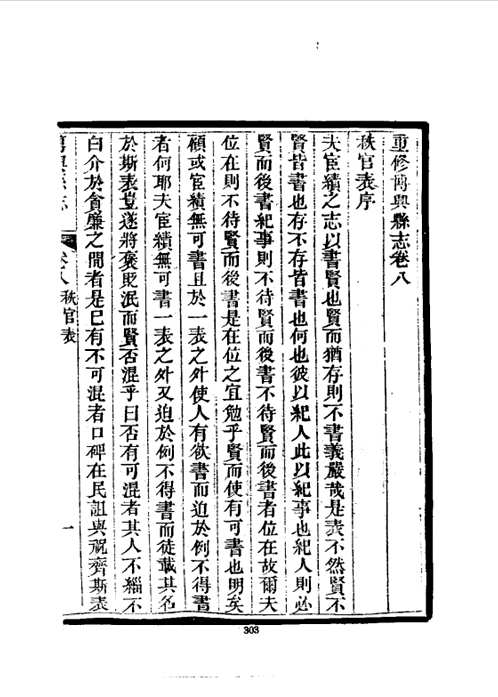 重修博興縣志卷八
秩官表序
夫宦績之志以書賢也賢而猶存則不書義嚴哉是表不然賢不
賢皆書也存不存皆書也何也彼以紀人此以紀事也紀人則必
賢而後書紀事則不待賢而後書不待賢而後書者位在故爾夫
位在則不待賢而後書是在位之宜勉乎賢而使有可書也明矣
顧或宦績無可書且於一表之外使人有欲書而迫於例不得書
者何耶夫宦績無可書一表之外又迫於例不得書而徒載其名
於斯表豈遂將褒貶泯而賢否混乎曰否有可混者其人不緇不
白介於貪廉之間者是已有不可混者口碑在民詛與祝齊斯表
卷八 秩官表 一
303